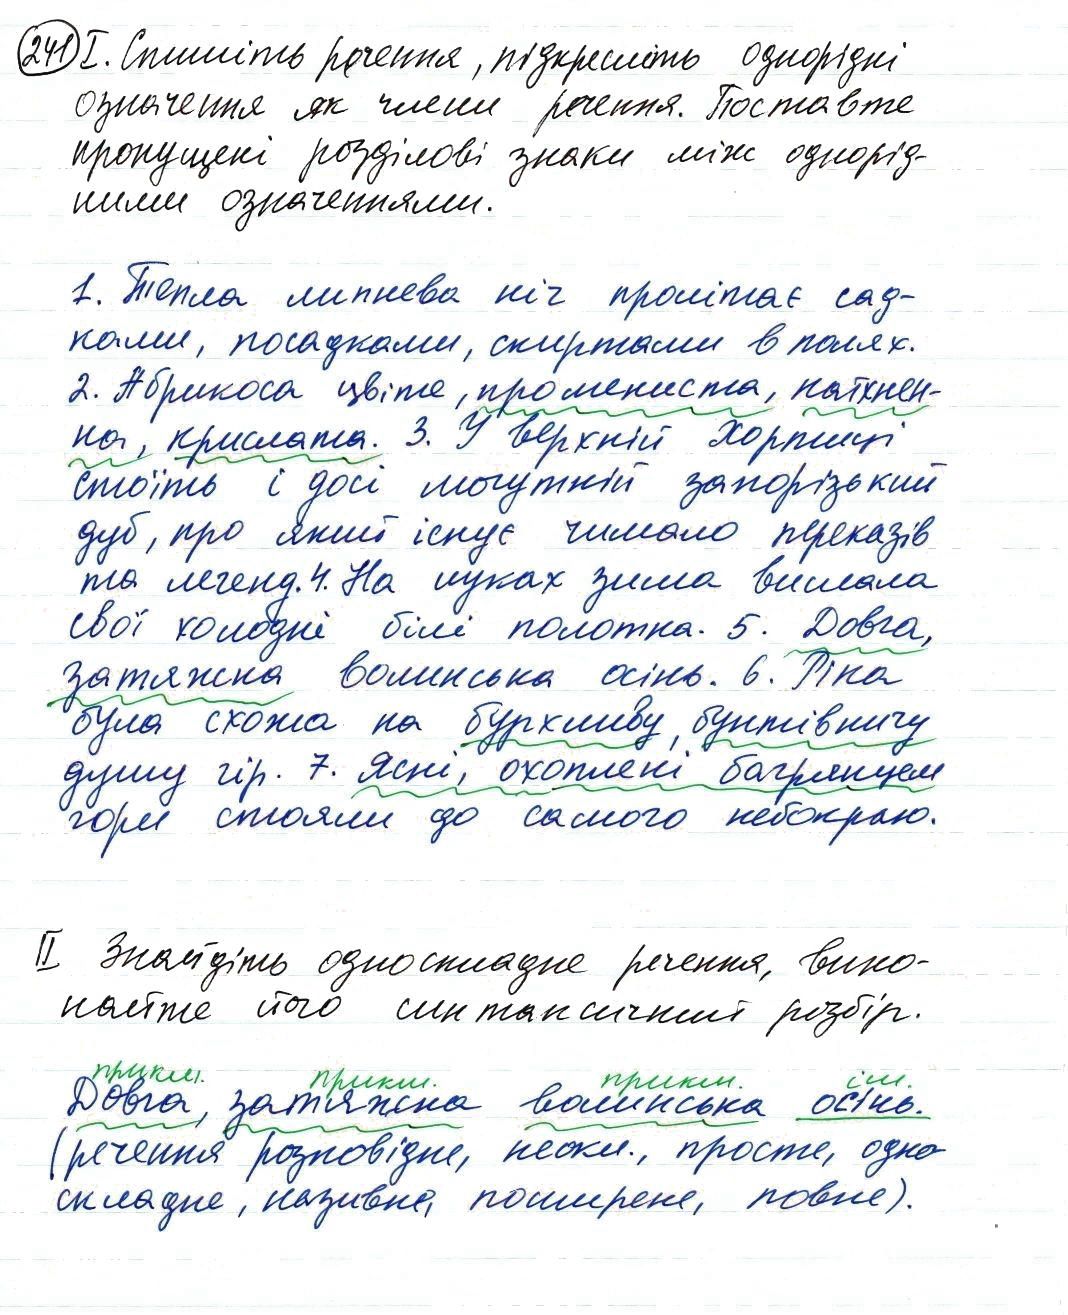 241 I. Спишіть речення, підкресліть однорідні
означення як члени речення. Поставте
пропущені розділові знаки між однорід-
ними означеннями.
1. Тепла липнева ніч пролітає сад-
ками, посадками, скиртами в полях.
2. Абрикоса цвіте, промениста, натхнен-
на, крислата. 3. У верхній Хортиці
стоїть і досі могутній запорізький
дуб, про який існує чимало переказів
та легенд. 4. На луках зима вислала
свої холодні білі полотна. 5. Довга,
затяжна волинська осінь. 6. Ріка
була схожа на бурхливу, бунтівничу
душу гір. 7. Ясні, охоплені багрянцем
гори стояли до самого небокраю.
II Знайдіть односкладне речення, вико-
найте його синтаксичний розбір.
прикм. прикм. прикм. ім.
Довга, затяжна волинська осінь.
(речення розповідне, неокл., просте, одно
складне, називне, поширене, повне).